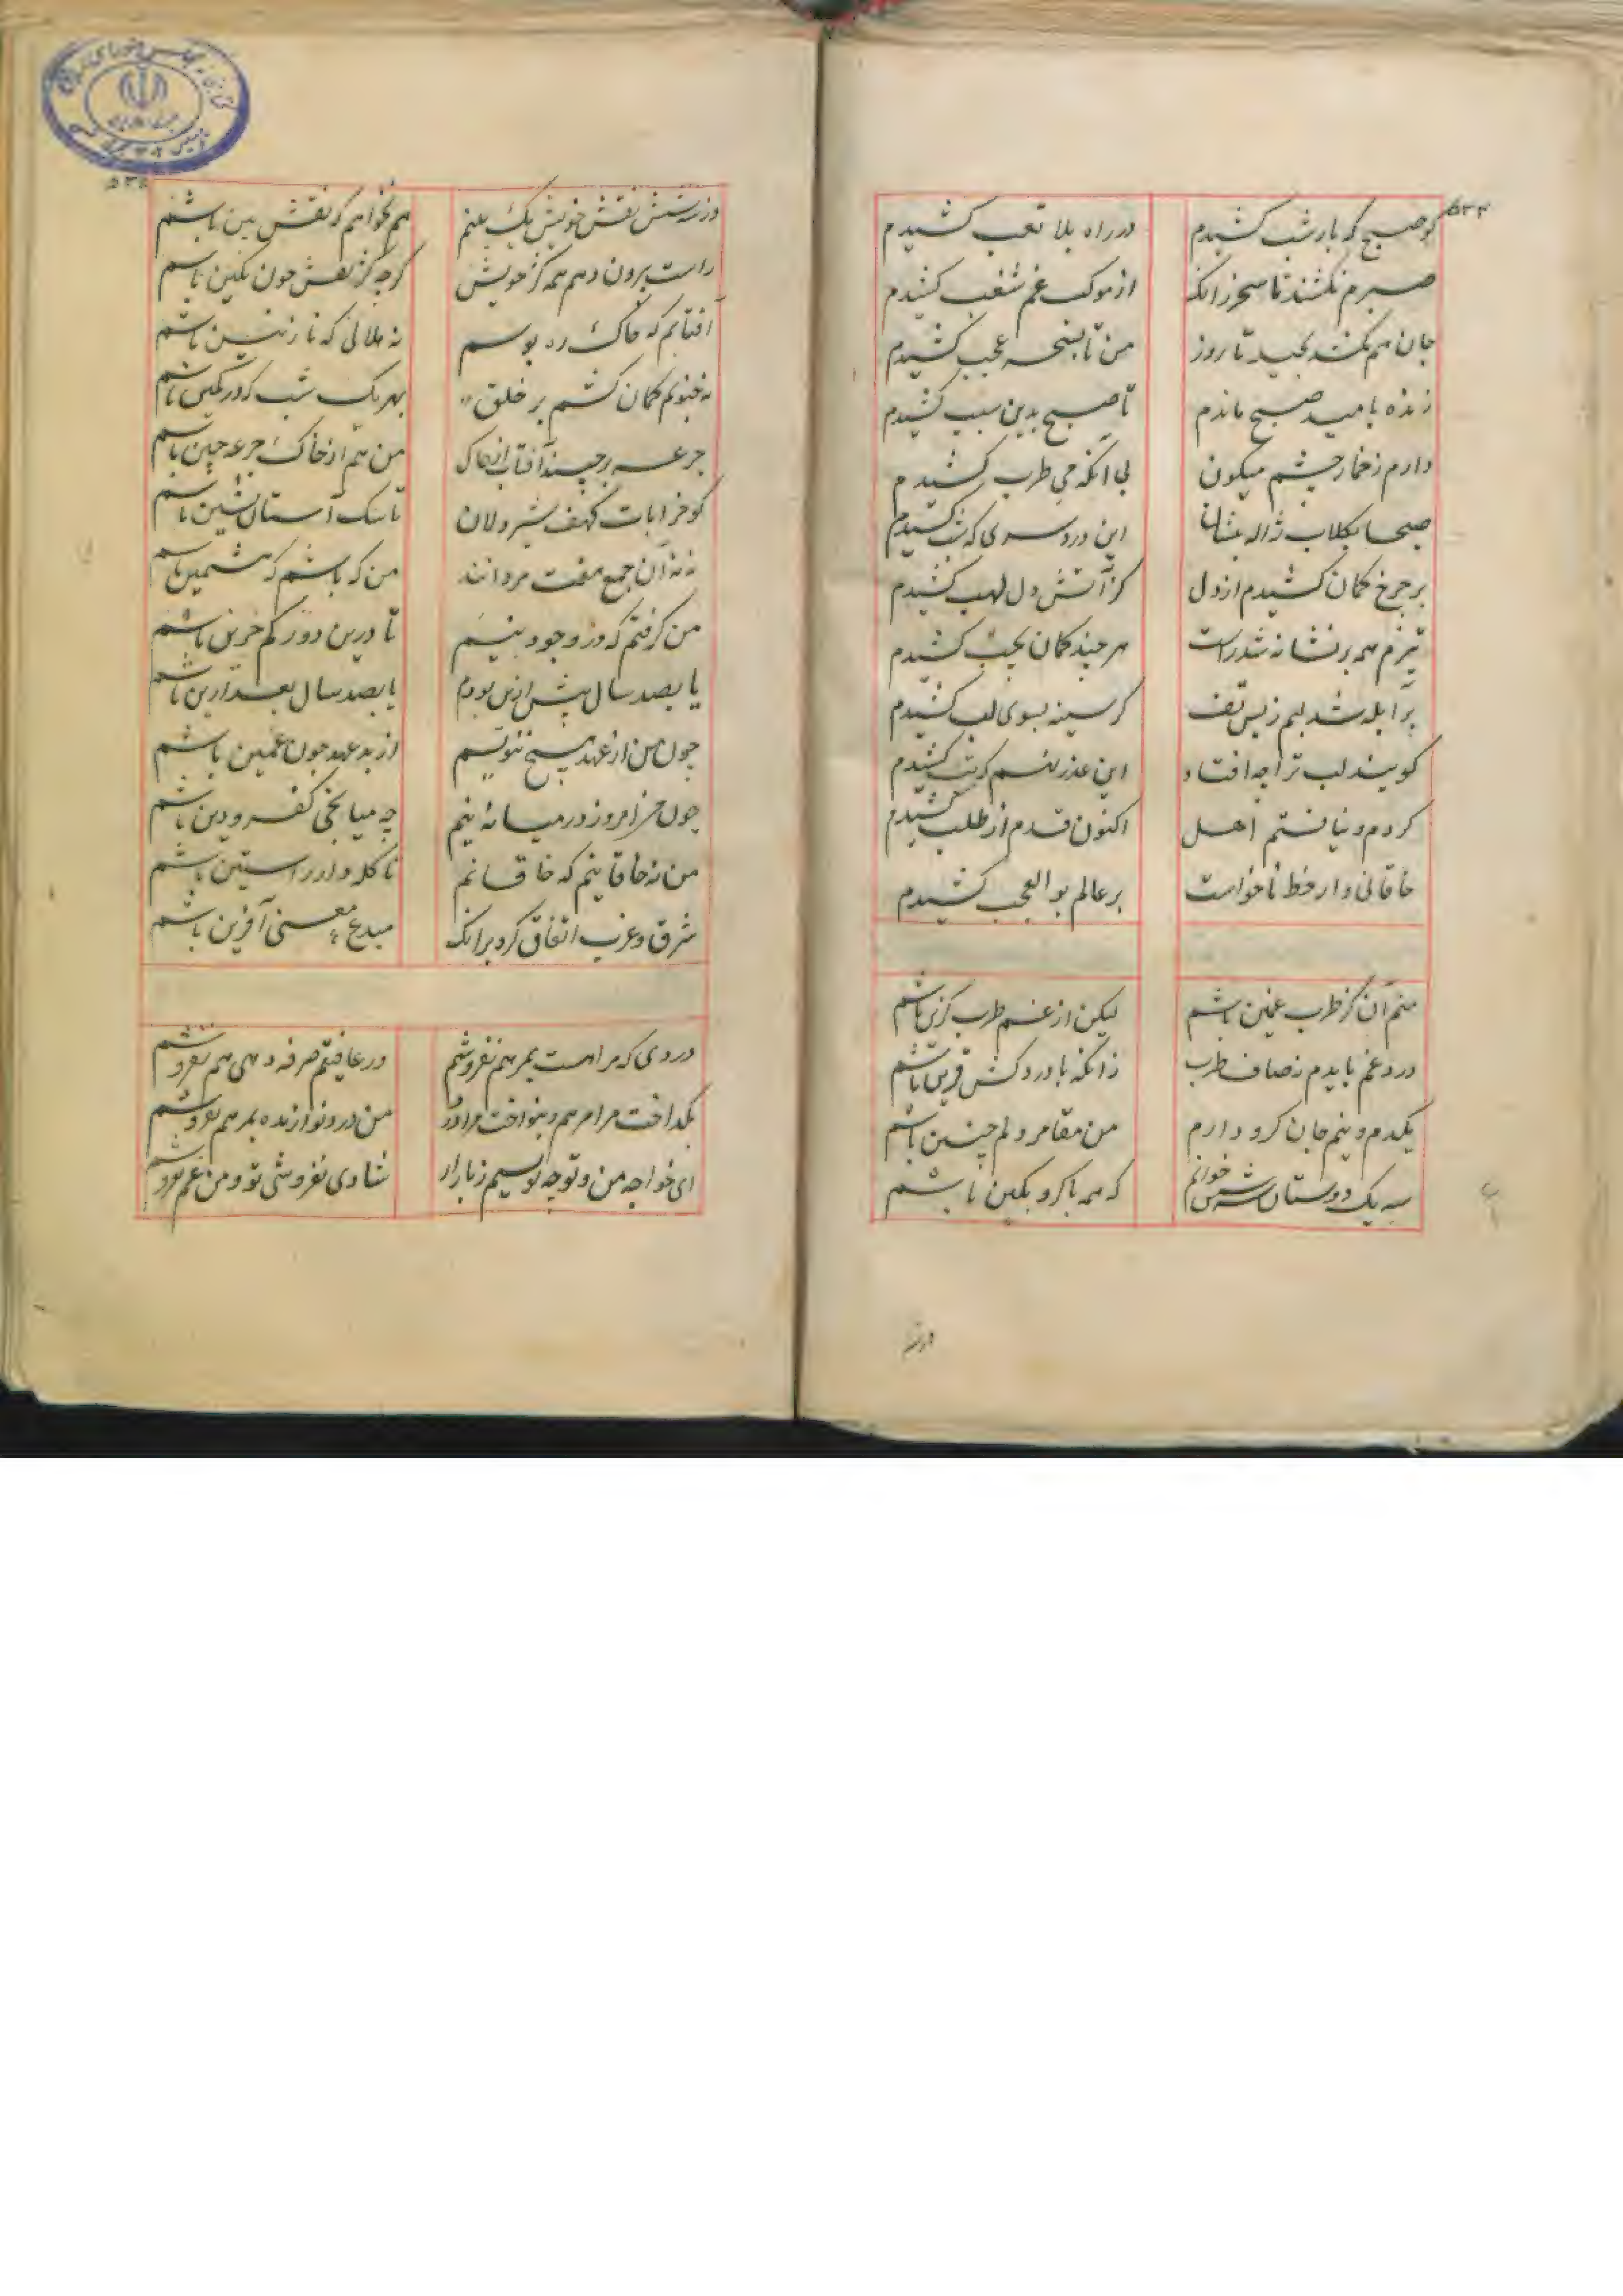 ۵۳۴
کو صبح که بار شب کشیدم در راه بلا تعب کشیدم
صبرم نکشند تا سحر زانکه از موکب غم شغب کشیدم
جان هم نکشد بحیله تا روز من تا بسحر عجب کشیدم
زنده بامید صبح ماندم تا صبح بدین سبب کشیدم
دارم ز خمار چشم میکون بی آنکه می طرب کشیدم
صبحا بکلاب ژاله بنشان این درد سری که شب کشیدم
بر چرخ کمان کشیدم از دل کز آتش دل لهب کشیدم
تیرم همه بر نشانه شد راست هر چند کمان بچپ کشیدم
پر ابله شد لبم ز بس تف کز سینه بسوی لب کشیدم
کویند لب ترا چه افتاد این عذر نهم که تب کشیدم
کردم و نیافتم اهل اکنون قدم از طلب کشیدم
خاقانی وار خط ناخواست بر عالم بوالعجب کشیدم
منم آن کز طرب غمین باشم لیکن از غم طرب کزین باشم
درد غم بایدم نه صاف طرب زانکه با دردکش قرین باشم
یکدم و نیم جان کرو دارم من مقامر دلم چنین باشم
سه یک دوستان شش خوانم که همه با کرو بکین باشم
۵۳۵
ور سه شش نقش خویش یک بینم هم نخواهم که نقش بین باشم
راست بیرون دهم همه کژ خویش کرچه کژ نقش چون نکین باشم
آفتابم که خاک ره بوسم نه هلالی که نازنین باشم
نه فنونم کمان کشم بر خلق بهر یک شب که در کمین باشم
جرعه برچیند آفتاب از خاک من هم از خاک جرعه چین باشم
کو خرابات کهف شیردلان تا سک آستان نشین باشم
نه نه آن جمع هفت مردانند من که باشم که هشتمین باشم
من کرفتم که در وجود بنیم تا درین دور کم حزین باشم
یا بصد سال پیش ازین بودم یا بصد سال بعد ازین باشم
چون من از عهد هیچ ننویسم از بد عهد چون غمین باشم
چون من امروز در میانه نیم چه میانجی کفر و دین باشم
من نه خاقانیم که خاقانم تا کله دار راستین باشم
شرق و غرب اتفاق کرد برانک مبدع معنی آفرین باشم
دردی که مرا هست بمرهم نفروشم ور عافیتم صرفه دهی هم نفروشم
بکداخت مرا مرهم و بنواخت مرا درد من درد نوازنده بمرهم نفروشم
ای خواجه من و تو چه فروشیم ز بازار شادی نفروشی تو و من غم نفروشم